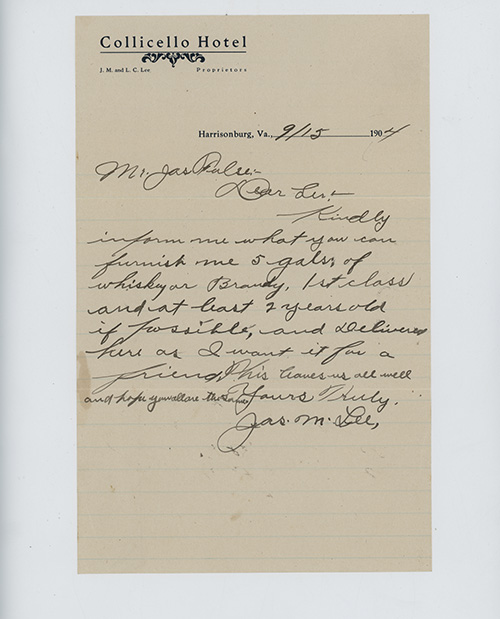 Collicello Hotel
J. M. and L. C. Lee Proprietors
Harrisonburg, Va., 9/15 1904
Mr. Jas Pulse:-
Dear Sir:-
Kindly
inform me what you can
furnish me 5 gals, of
whiskey or Brandy, 1st class
and at least 2 years old
if possible, and Delivered
here as I want it for a
friend, This leaves us all well
and hope you all are the same
Yours Truly.
Jas. M. Lee,